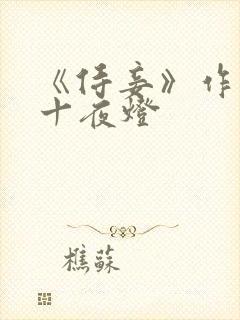 《侍妾》作
十夜燈
樵蘇